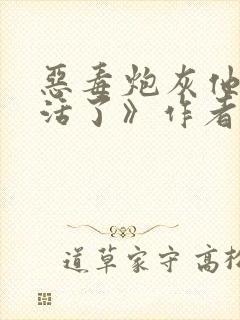 恶毒炮灰他
活了》作者
道草家守 高松